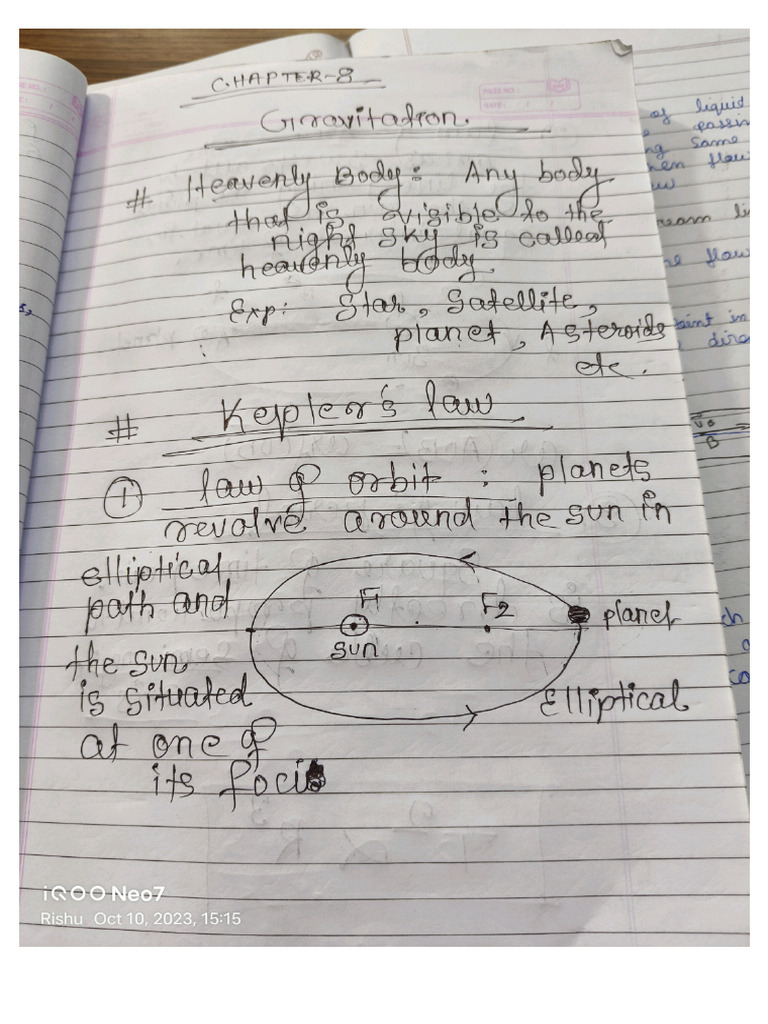 CHAPTER-8
Gravitation.
# Heavenly Body: Any body
that is visible to the
night sky is called
heavenly body.
Exp: Star, Satellite,
planet, Asteroids
etc.
# Kepler's law
① law of orbit : planets
revolve around the sun in
elliptical
path and
the sun
is situated
at one of
its foci
F1
F2
sun
planet
Elliptical
of liquid
same
flow
B
iQOO Neo7
Rishu Oct 10, 2023, 15:15